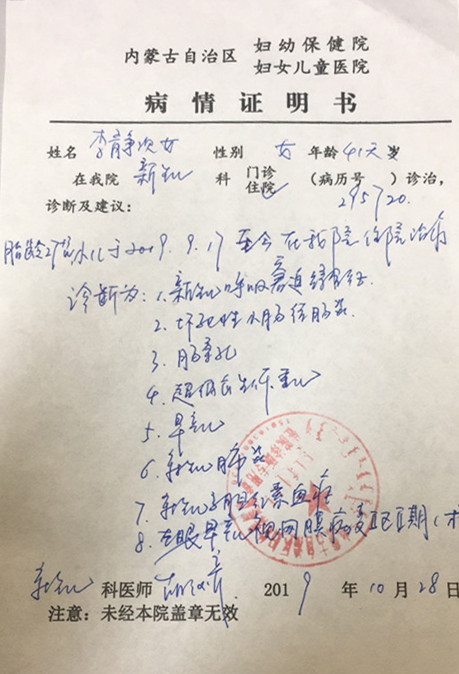 内蒙古自治区 妇幼保健院
妇女儿童医院
病情证明书
姓名 李静次女 性别 女 年龄 41天 岁
在我院 新生儿 科 门诊 住院 (病历号 295720) 诊治,
诊断及建议:
于2019.9.17至今在我院住院治疗
诊断为:1.新生儿呼吸窘迫综合征
2.坏死性小肠结肠炎
3.肠穿孔
4.超低出生体重儿
5.早产儿
6.新生儿肺炎
7.新生儿高胆红素血症
8.左眼早产儿视网膜病变
新生儿 科医师 2019年10月28日
注意:未经本院盖章无效